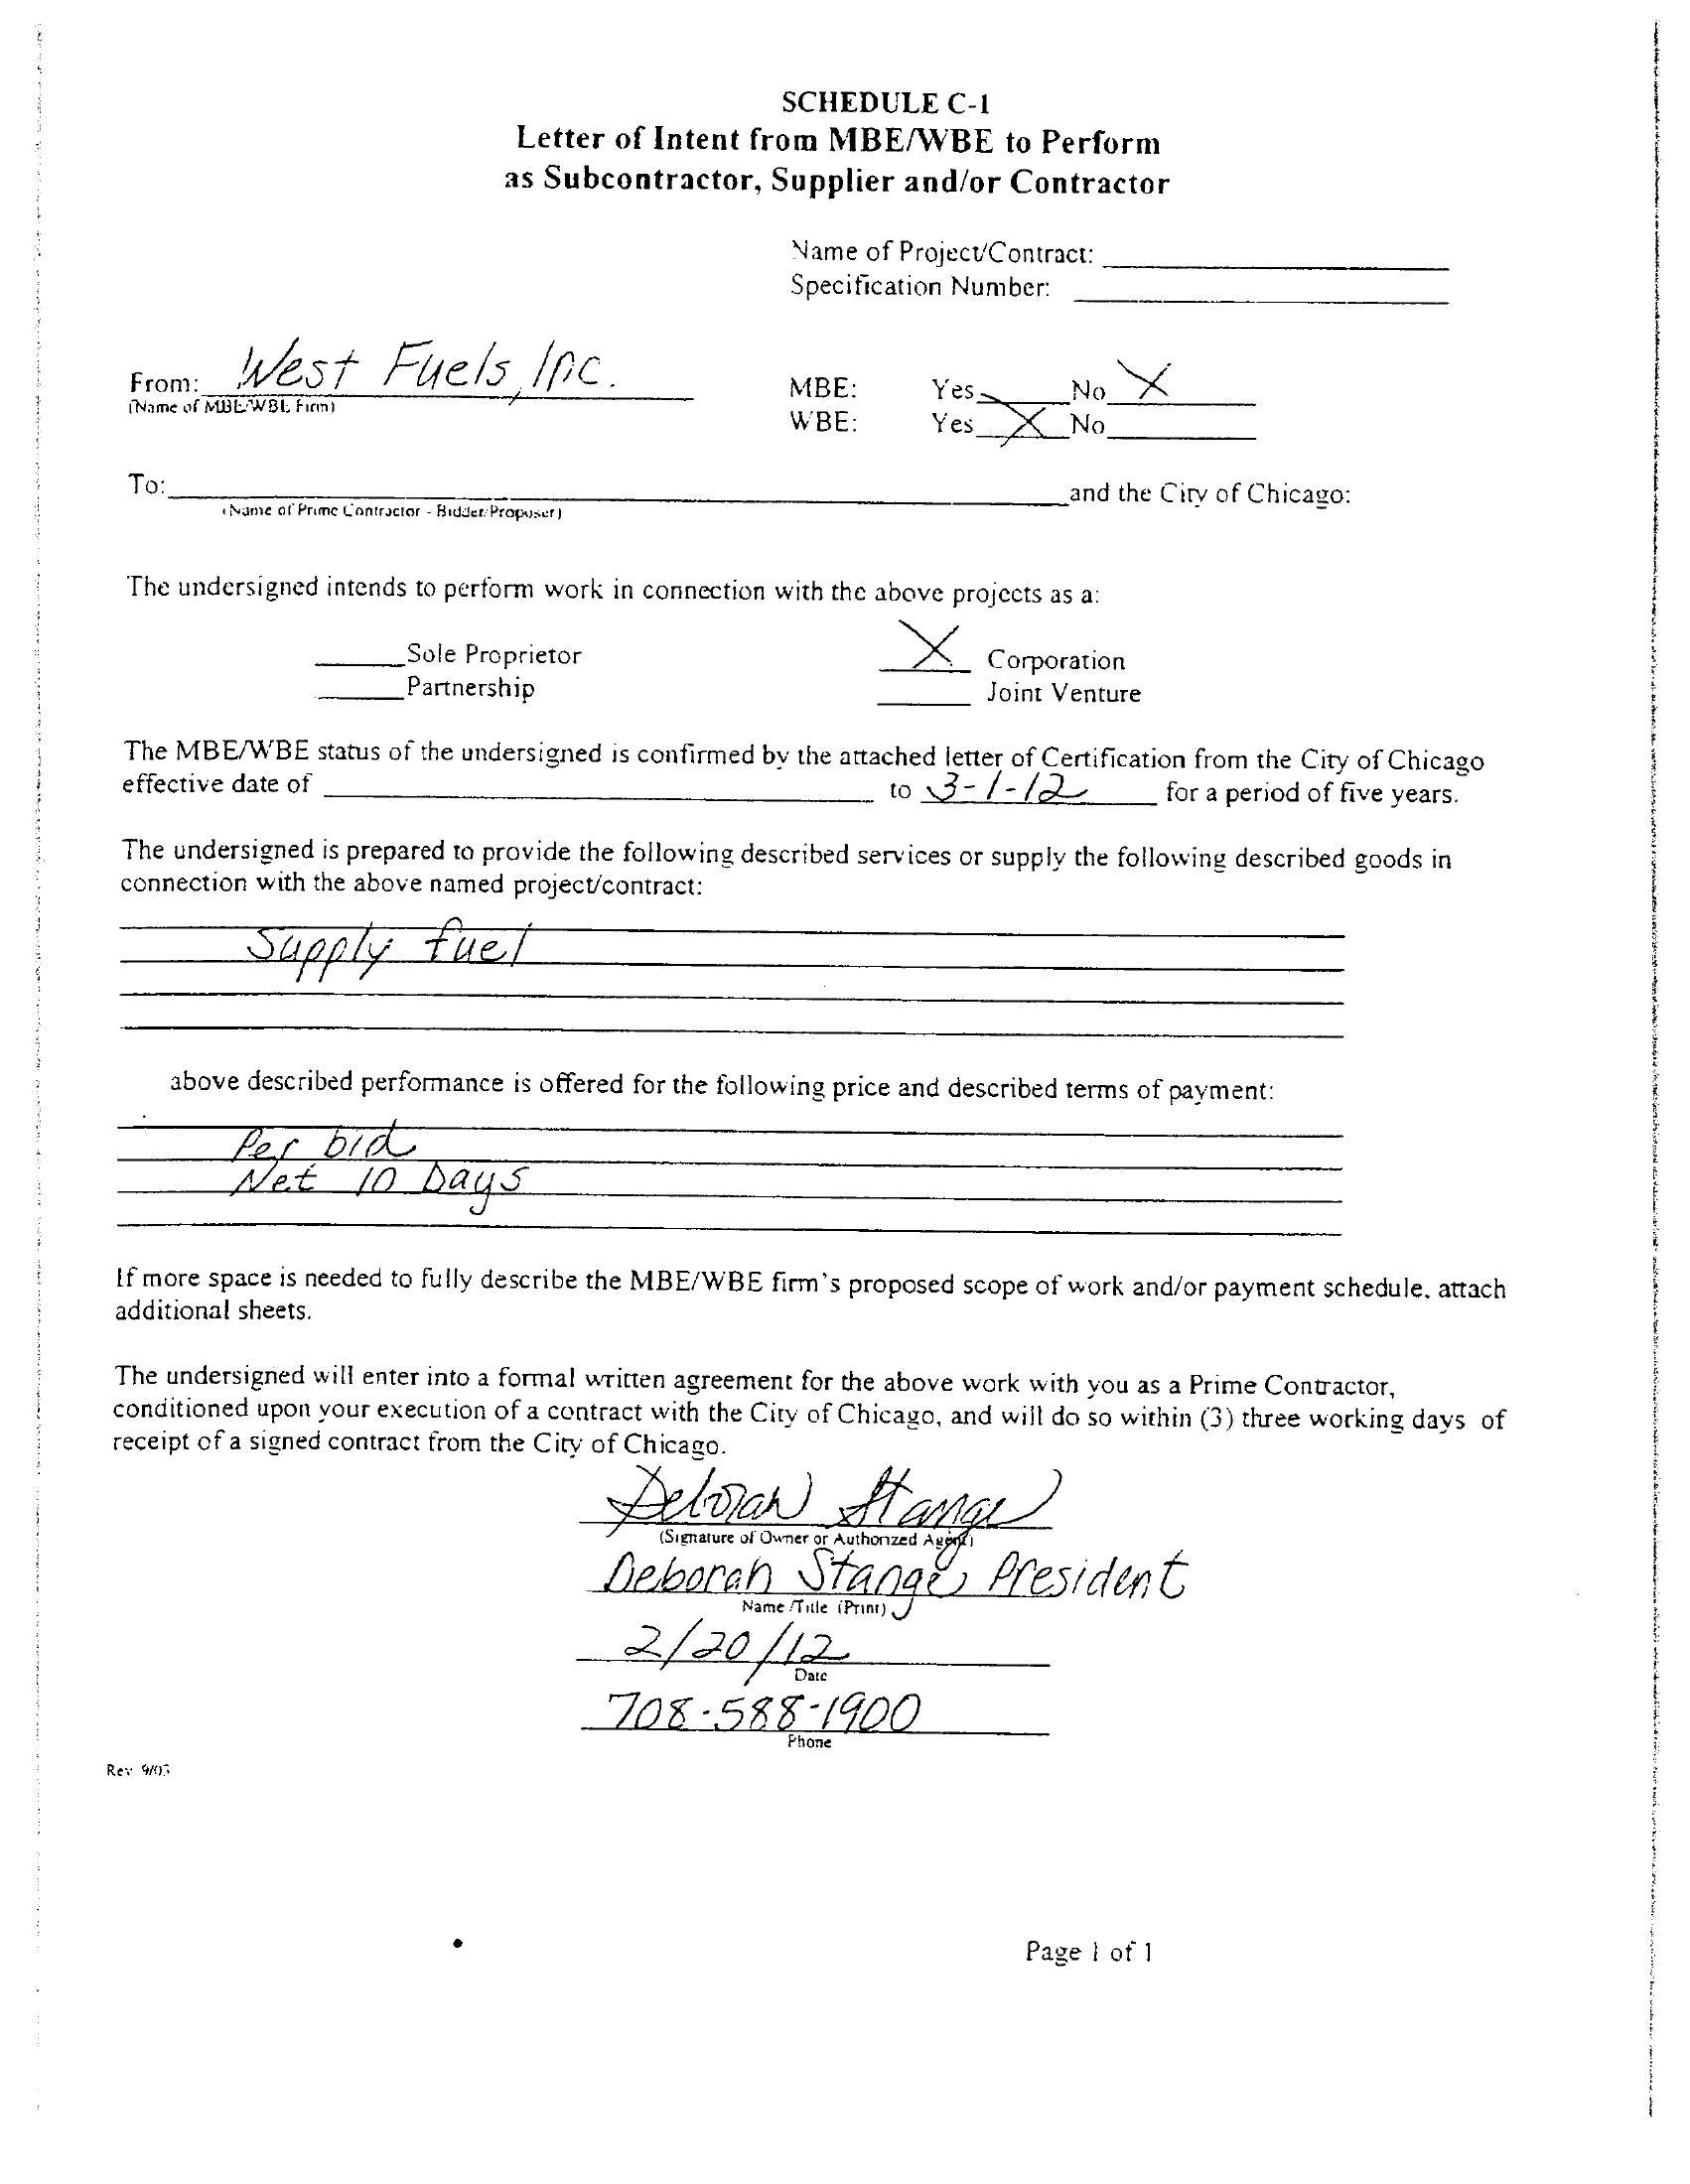 SCHEDULE C-1
Letter of Intent from MBE/WBE to Perform
as Subcontractor, Supplier and/or Contractor
Name of Project/Contract:
Specification Number:
From: West Fuels, Inc.
(Name of MBE/WBE Firm)
MBE: Yes No X
WBE: Yes X No
To: and the City of Chicago:
(Name of Prime Contractor - Bidder/Proposer)
The undersigned intends to perform work in connection with the above projects as a:
Sole Proprietor X Corporation
Partnership Joint Venture
The MBE/WBE status of the undersigned is confirmed by the attached letter of Certification from the City of Chicago
effective date of to 3-1-12 for a period of five years.
The undersigned is prepared to provide the following described services or supply the following described goods in
connection with the above named project/contract:
Supply fuel
above described performance is offered for the following price and described terms of payment:
Per bid
Net 10 Days
If more space is needed to fully describe the MBE/WBE firm's proposed scope of work and/or payment schedule, attach
additional sheets.
The undersigned will enter into a formal written agreement for the above work with you as a Prime Contractor,
conditioned upon your execution of a contract with the City of Chicago, and will do so within (3) three working days of
receipt of a signed contract from the City of Chicago.
Deborah Stange
(Signature of Owner or Authorized Agent)
Deborah Stange, President
Name/Title (Print)
2/20/12
Date
708-588-1900
Phone
Rev 9/05
Page 1 of 1